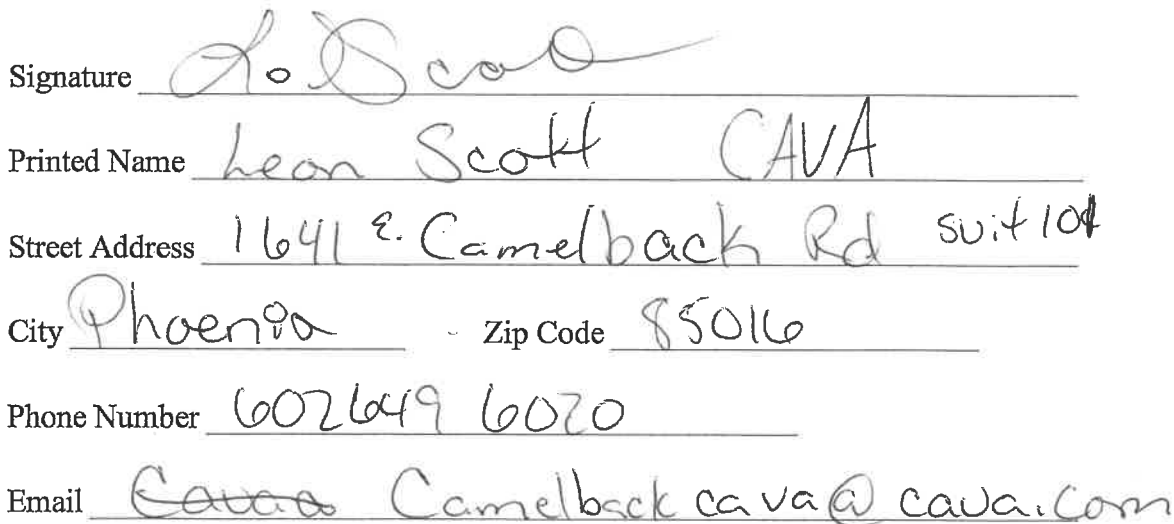 Signature L. Scott
Printed Name Leon Scott CAVA
Street Address 1641 E. Camelback Rd suit 101
City Phoenix Zip Code 85016
Phone Number 602649 6020
Email Camelback cava@cava.com